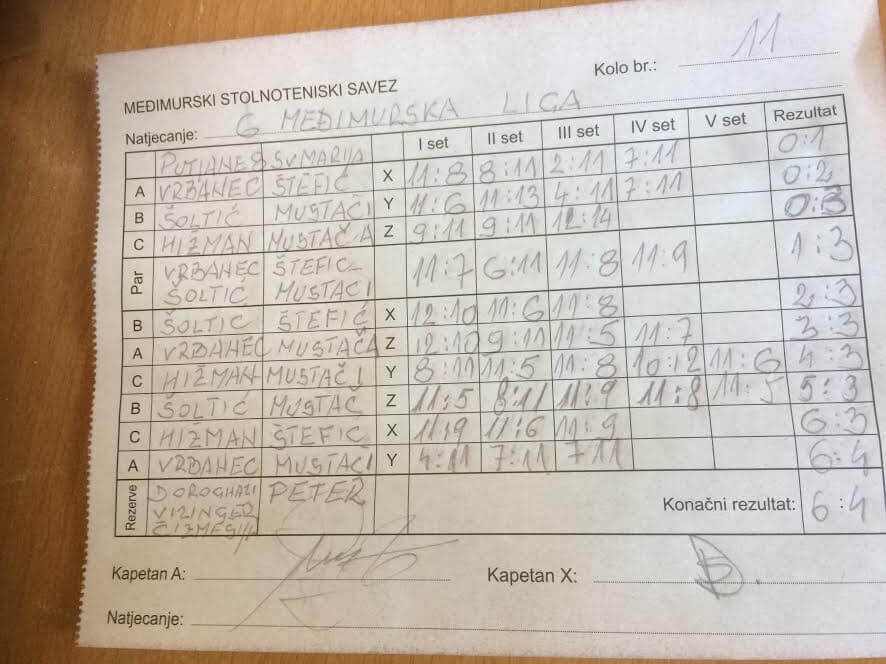 Kolo br.: 11
MEĐIMURSKI STOLNOTENISKI SAVEZ
Natjecanje: 6 MEĐIMURSKA LIGA
I set II set III set IV set V set Rezultat
SV MARIJA
A VRBANEC ŠTEFIĆ X 11:8 8:11 2:11 7:11 0:1
B ŠOLTIĆ MUSTAČI Y 11:6 11:13 4:11 7:11 0:2
C HIŽMAN MUSTAČA Z 9:11 9:11 12:14 0:3
Par VRBANEC ŠTEFIC 11:7 6:11 11:8 11:9 1:3
ŠOLTIĆ MUSTACI
B ŠOLTIC ŠTEFIĆ X 12:10 11:6 11:8 2:3
A VRBANEC MUSTAČA Z 12:10 9:11 11:5 11:7 3:3
C HIŽMAN MUSTAČI Y 8:11 11:5 11:8 10:12 11:6 4:3
B ŠOLTIĆ MUSTAČ Z 11:5 8:11 11:9 11:8 11:5 5:3
C HIŽMAN ŠTEFIC X 11:9 11:6 11:9 6:3
A VRBANEC MUSTACI Y 4:11 7:11 7 11 6:4
Rezerve DOROGHAZI PETER Konačni rezultat: 6:4
VIZINGER
Kapetan A: Kapetan X:
Natjecanje: